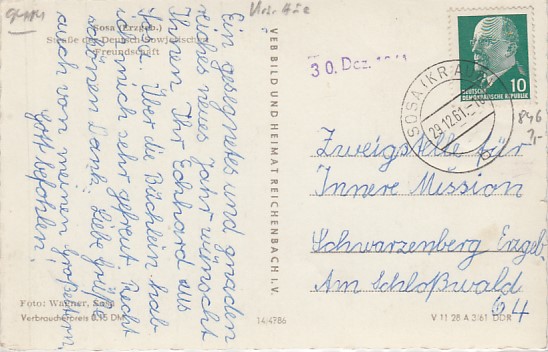 Sosa (Erzgeb.)
Straße der Deutsch-Sowjetischen
Freundschaft
Ein gesegnetes und gnaden
reiches neues Jahr wünscht
Ihnen Ihr Eckhard aus
Über die Büchlein hab
ich mich sehr gefreut. Recht
schönen Dank. Liebe Grüße
auch von meinen Großeltern,
Gott befohlen!
Foto: Wagner, Sosa
Verbraucherpreis 0,15 DM
14/4786
VEB BILD UND HEIMAT REICHENBACH I. V.
30. Dez. 1961
DEUTSCHE
DEMOKRATISCHE REPUBLIK
10
SOSA (KR AUE)
29.12.61
b
846
Zweigstelle für
Innere Mission
Schwarzenberg Erzgeb.
Am Schloßwald
64
V 11 28 A 3/61 DDR